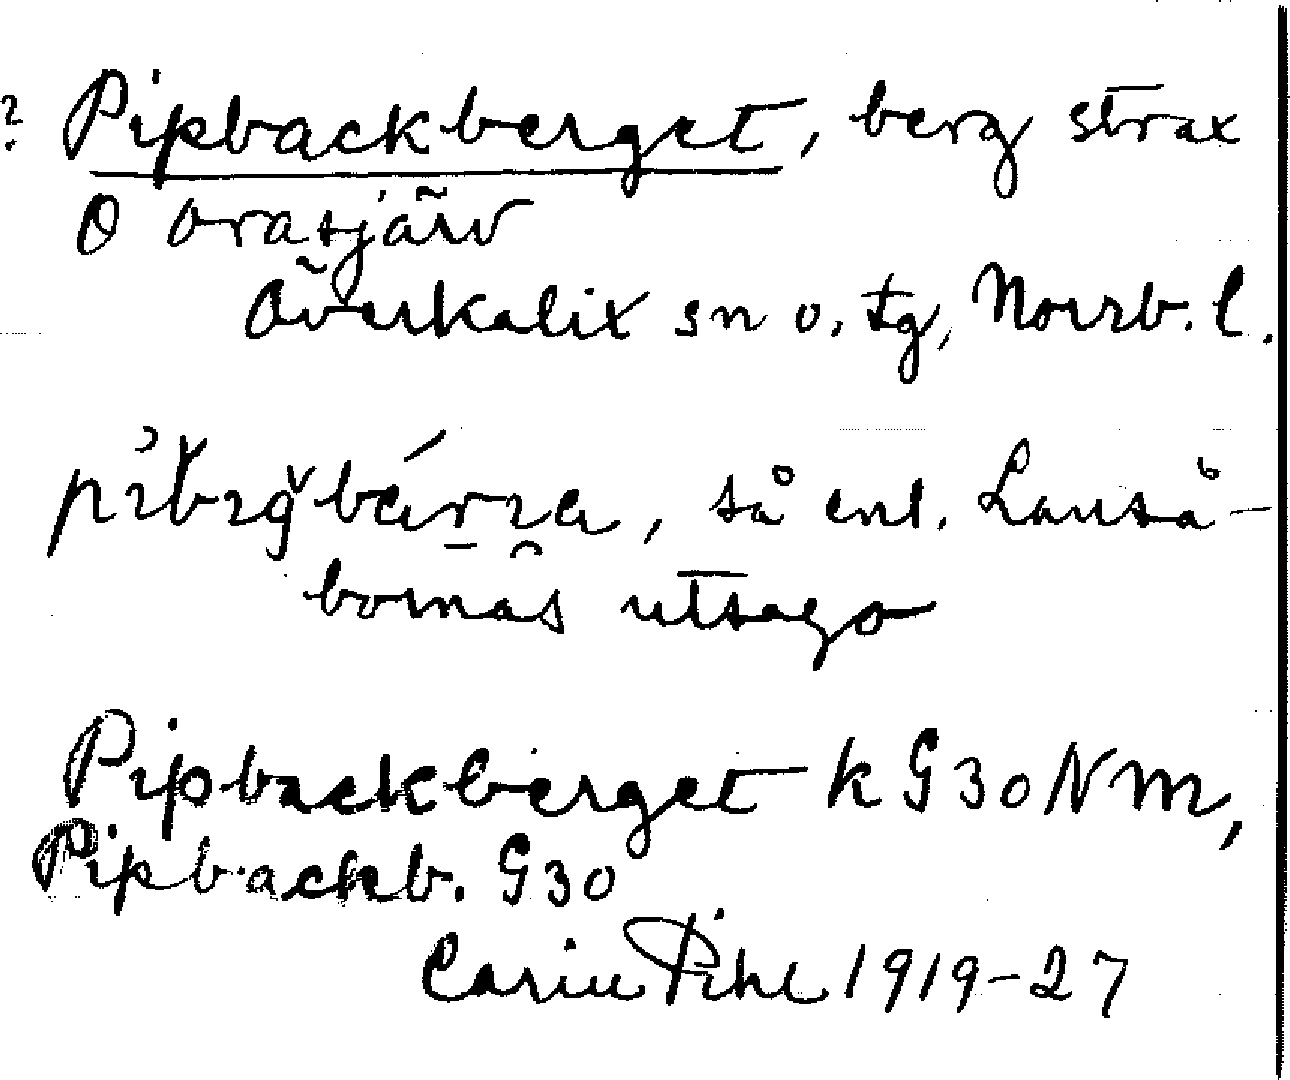 ? Pipbackberget, berg strax
O Orasjärv
Överkalix sn o. tg, Norrb. l.
så enl. Lanså-
bornas utsago
Pipbackberget k G30NM,
Pipbackb. G30
Carin Pihl 1919-27